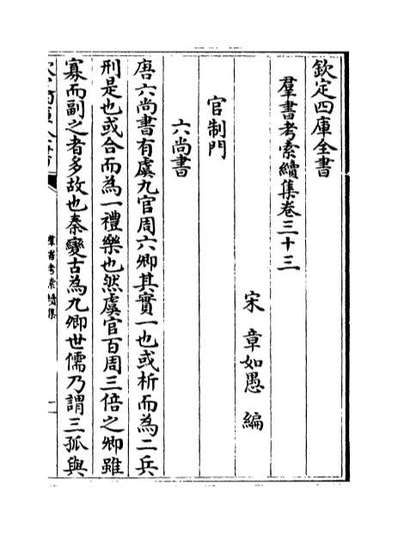 欽定四庫全書
羣書考索續集卷三十三
宋 章如愚 編
官制門
六尚書
唐六尚書有虞九官周六卿其實一也或析而為二兵
刑是也或合而為一禮樂也然虞官百周三倍之卿雖
寡而副之者多故也秦變古為九卿世儒乃謂三孤與